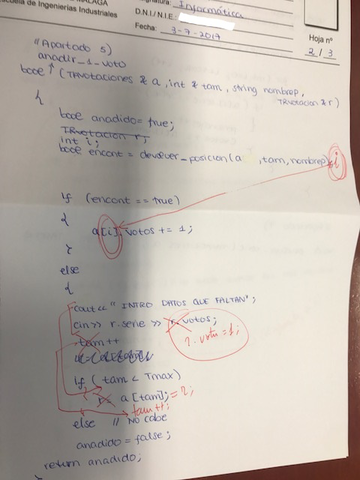 MÁLAGA
Escuela de Ingenierías Industriales
Informática
D.N.I./N.I.E.
Fecha: 3-7-2019
Hoja nº
2 / 3
"Apartado 5)
anadir_1_voto
bool (TAVotaciones & a, int & tam, string nombrep,
TRvotacion & r)
{
bool anadido= true;
TRvotacion r;
int i;
bool encont = devolver_posicion (a, tam, nombrep, i
if (encont == true)
{
a[i].votos += 1;
}
else
{
cout << "INTRO DATOS QUE FALTAN";
cin >> r.serie >> r.votos;
r.votos = 1;
tam++
if (tam < Tmax)
a[tam] = r;
tam++;
else // No cabe
anadido = false;
return anadido;
}